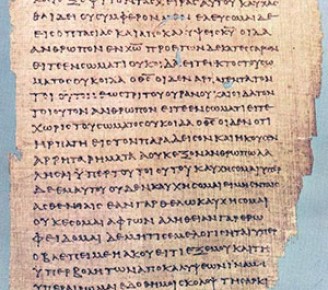 ΤΑΣ ΧΕΙΡΑΣ ΑΥΤΟΥ ΚΑΥΧΑΣ
ΘΑΙ ΔΕΙ ΟΥ ΣΥΜΦΕΡΟΝ ΜΕΝ ΕΛΕΥΣΟΜΑΙ ΔΕ
ΕΙΣ ΟΠΤΑΣΙΑΣ ΚΑΙ ΑΠΟΚΑΛΥΨΕΙΣ ΚΥ ΟΙΔΑ
ΑΝΘΡΩΠΟΝ ΕΝ ΧΩ ΠΡΟ ΕΤΩΝ ΔΕΚΑΤΕΣΣΑΡΩΝ
ΕΙΤΕ ΕΝ ΣΩΜΑΤΙ ΟΥΚ ΟΙΔΑ ΕΙΤΕ ΕΚΤΟΣ ΤΟΥ ΣΩ
ΜΑΤΟΣ ΟΥΚ ΟΙΔΑ Ο ΘΣ ΟΙΔΕΝ ΑΡΠΑΓΕΝΤΑ ΤΟΝ
ΤΟΙΟΥΤΟΝ ΕΩΣ ΤΡΙΤΟΥ ΟΥΡΑΝΟΥ ΚΑΙ ΟΙΔΑ ΤΟΝ
ΤΟΙΟΥΤΟΝ ΑΝΘΡΩΠΟΝ ΕΙΤΕ ΕΝ ΣΩΜΑΤΙ ΕΙΤΕ
ΧΩΡΙΣ ΤΟΥ ΣΩΜΑΤΟΣ ΟΥΚ ΟΙΔΑ Ο ΘΣ ΟΙΔΕΝ ΟΤΙ
ΗΡΠΑΓΗ ΕΙΣ ΤΟΝ ΠΑΡΑΔΕΙΣΟΝ ΚΑΙ ΗΚΟΥΣΕΝ
ΑΡΡΗΤΑ ΡΗΜΑΤΑ Α ΟΥΚ ΕΞΟΝ ΑΝΘΡΩΠΩ ΛΑ
ΛΗΣΑΙ ΥΠΕΡ ΤΟΥ ΤΟΙΟΥΤΟΥ ΚΑΥΧΗΣΟΜΑΙ ΥΠΕΡ
ΔΕ ΕΜΑΥΤΟΥ ΟΥΔΕΝ ΚΑΥΧΗΣΟΜΑΙ ΕΙ ΜΗ ΕΝ ΤΑΙΣ
ΑΣΘΕΝΕΙΑΙΣ ΕΑΝ ΓΑΡ ΘΕΛΩ ΚΑΥΧΗΣΟΜΑΙ
ΟΥΚ ΕΣΟΜΑΙ ΑΦΡΩΝ ΑΛΗΘΕΙΑΝ ΓΑΡ ΕΡΩ
ΦΕΙΔΟΜΑΙ ΔΕ ΜΗ ΤΙΣ ΕΜΕ ΛΟΓΙΣΗΤΑΙ ΥΠΕΡ
Ο ΒΛΕΠΕΙ ΜΕ Η ΑΚΟΥΕΙ ΤΙ ΕΞ ΕΜΟΥ ΚΑΙ ΤΗ
ΥΠΕΡΒΟΛΗ ΤΩΝ ΑΠΟΚΑΛΥΨΕΩΝ ΙΝΑ ΜΗ
ΥΠΕΡΑΙΡΩΜΑΙ ΕΔΟΘΗ ΜΟΙ ΣΚΟΛΟΨ ΤΗ ΣΑΡΚΙ